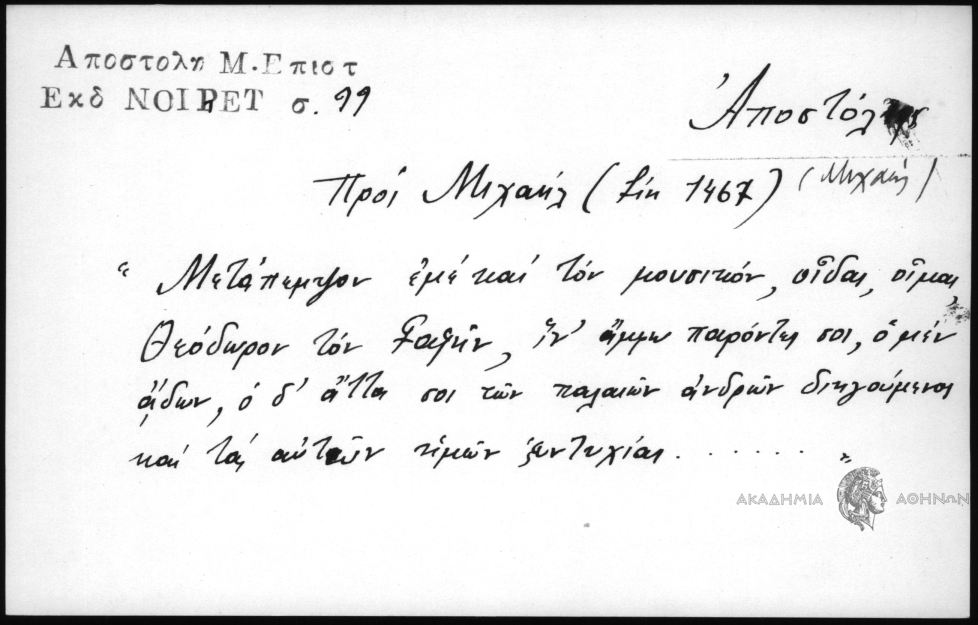 Αποστολη Μ. Επιστ
Εκδ NOIRET σ. 99
Ἀποστόλης
Πρός Μιχαήλ ( 1467) (Μιχαήλ)
" Μετάπεμψον ἐμέ καί τόν μουσικόν, οἶδας, οἶμαι,
Θεόδωρον τόν , ἵν' ἄμφω παρόντες σοι, ὁ μέν
ᾄδων, ὁ δ' ἄττα σοι τῶν παλαιῶν ἀνδρῶν διηγούμενος
καί τάς αὐτῶν ἡμῶν ξυντυχίας . . . . . . "
ΑΚΑΔΗΜΙΑ ΑΘΗΝΩΝ